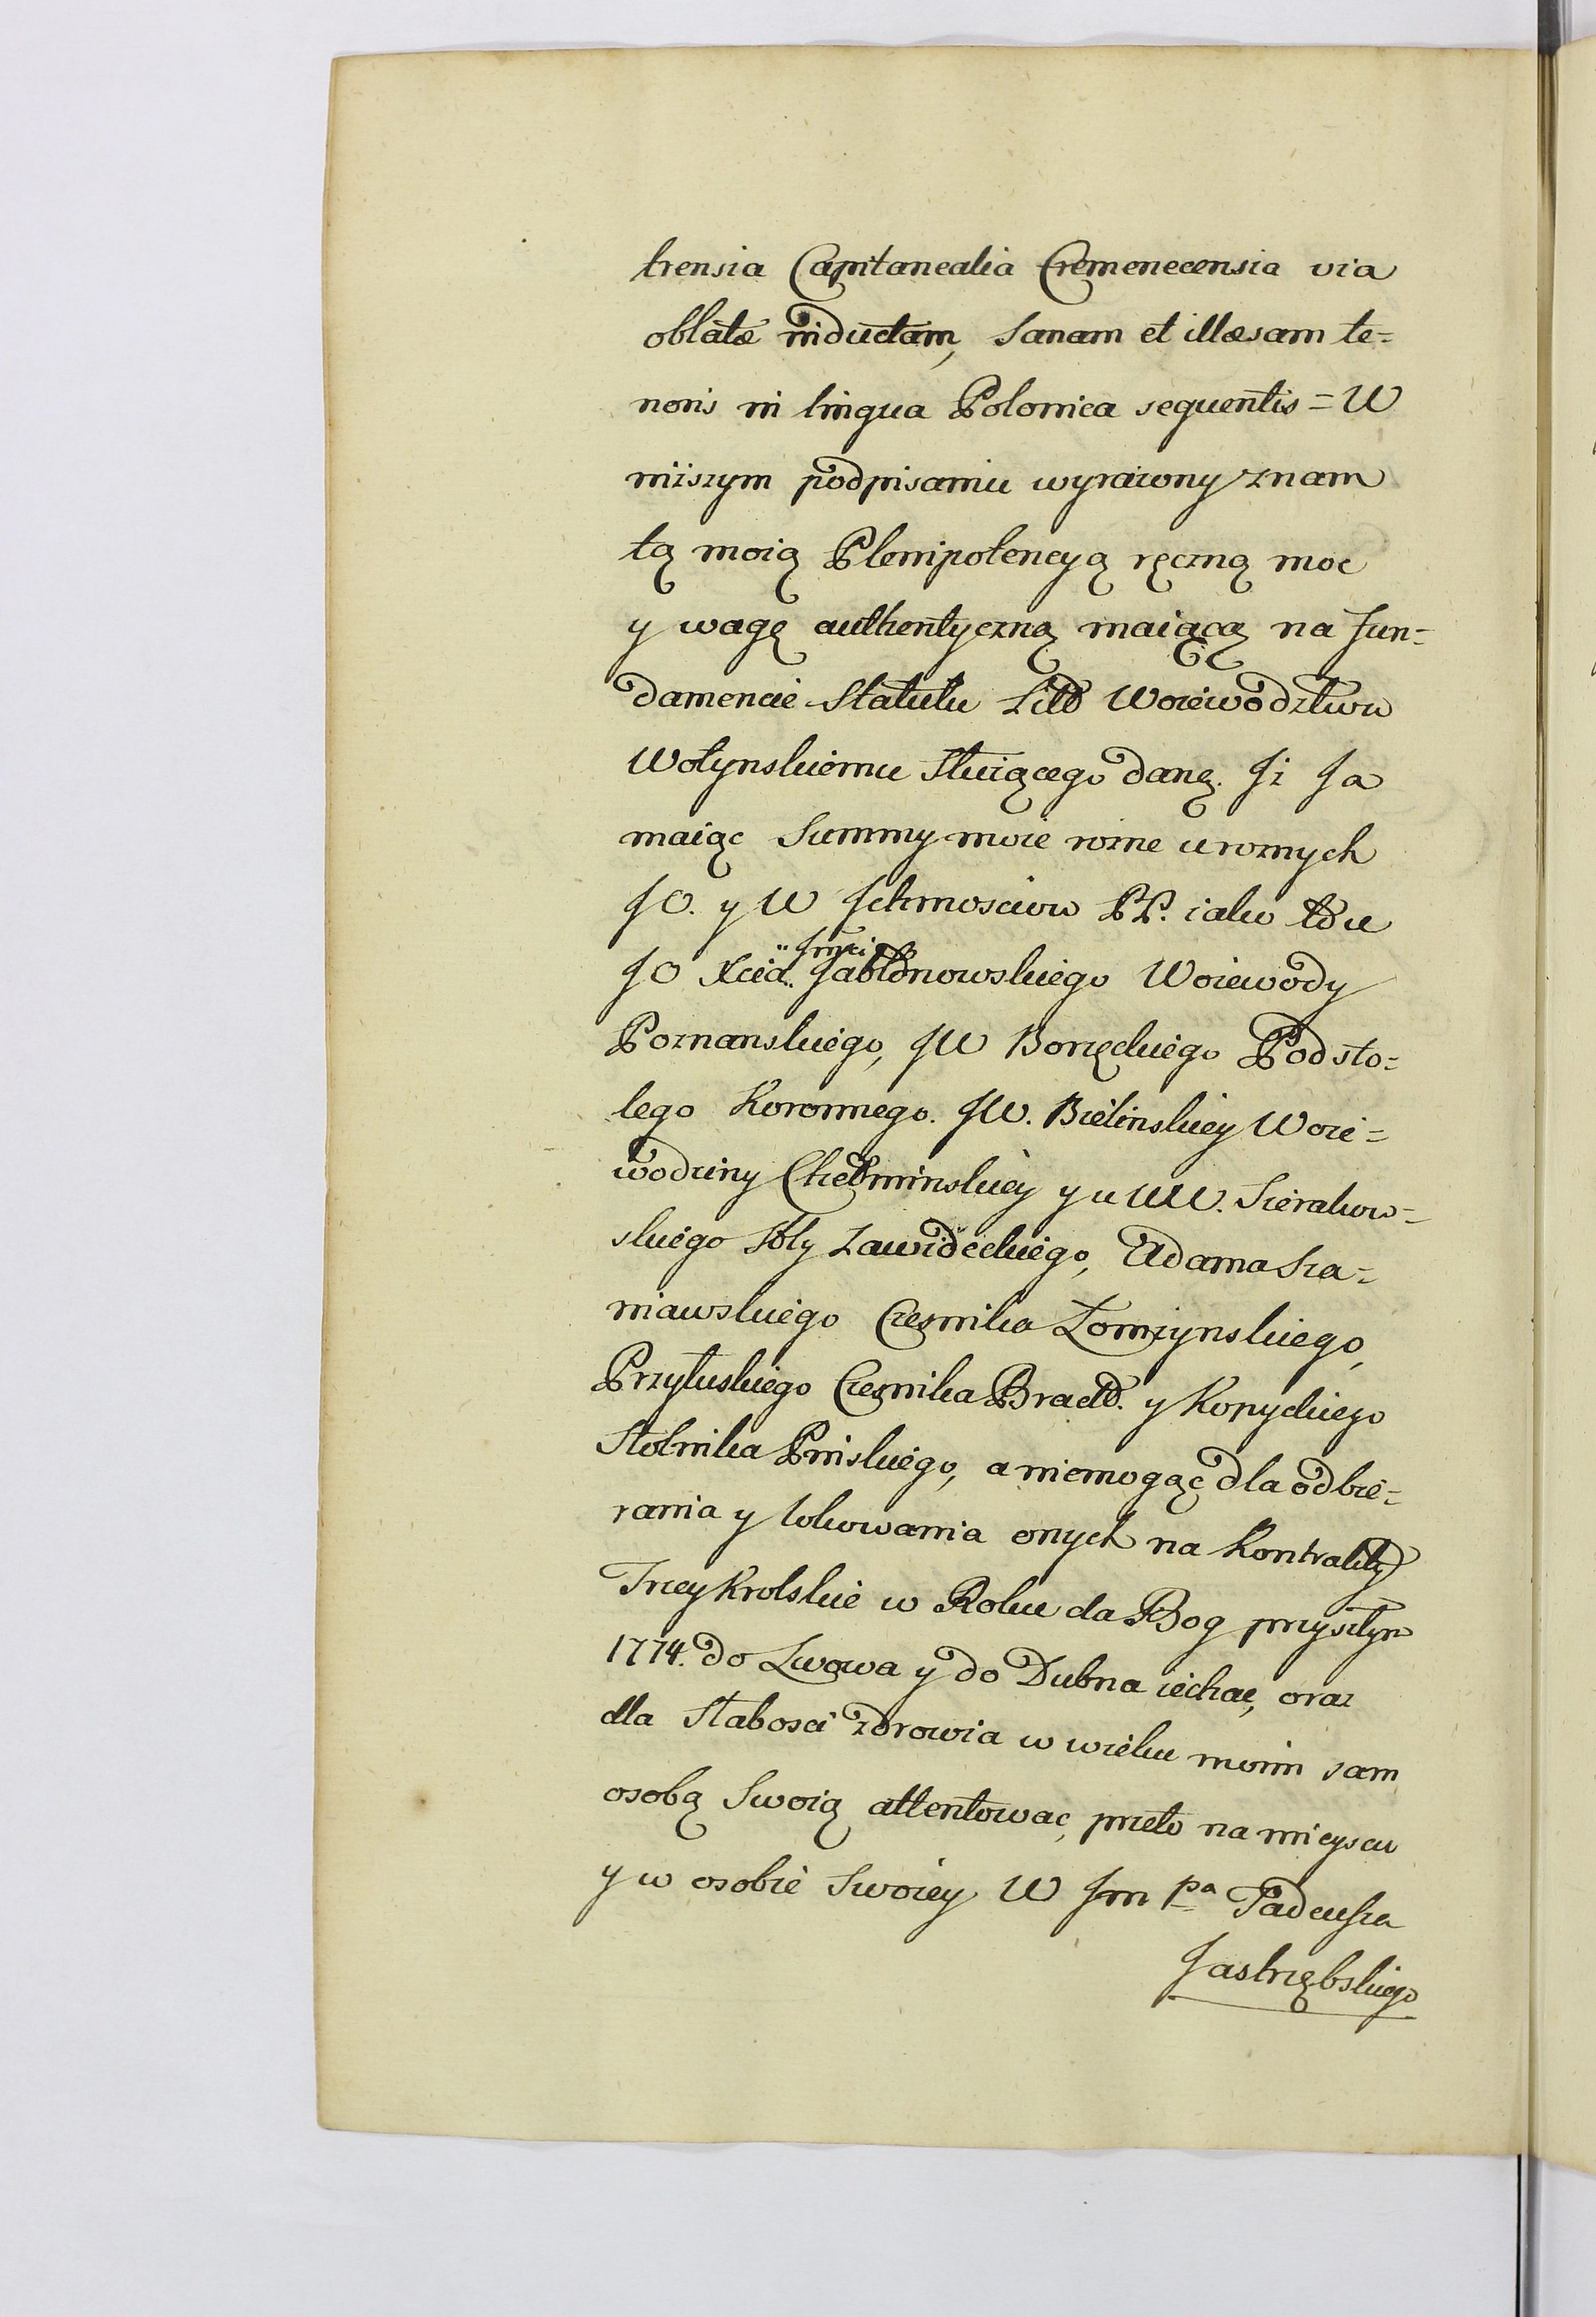 trensia Capitanealia Cremenecensia via
oblatæ inductam, Sanam et illæsam te=
noris in lingua Polonica sequentis = W
niższym podpisaniu wyrażony znam
tą moią Plenipotencyą ręczną moc
y wagę authentyczną maiącą na Fun=
damencie Statutu Litt Woiewodztwu
Wołynskiemu Służącego daną. Iż Ja
maiąc Summy moie rożne u rożnych
JO. y W Ichmosciow PP. iako to u
JO Xcia Jmci Jabłonowskiego Woiewody
Poznanskiego, JW Borzęckiego Podsto=
lego Koronnego. JW. Bielinskiey Woie=
wodziny Chełminskiey y u WW. Sierakow=
skiego Stty Zawideckiego, Adama Sza=
niawskiego Czesnika Łomżynskiego,
Przyłuskiego Czesnika Bracłł. y Kopyckiego
Stolnika Pinskiego, a niemogąc dla odbie=
rania y lokowania onych na Kontrakty
Trzey Krolskie w Roku da Bog przyszłym
1774. do Lwowa y do Dubna iechac, oraz
dla Słabosci zdrowia w wieku moim sam
osobą Swoią attentowac, przeto na mieyscu
y w osobie Swoiey W Jm pa Tadeusza
Jastrzębskiego